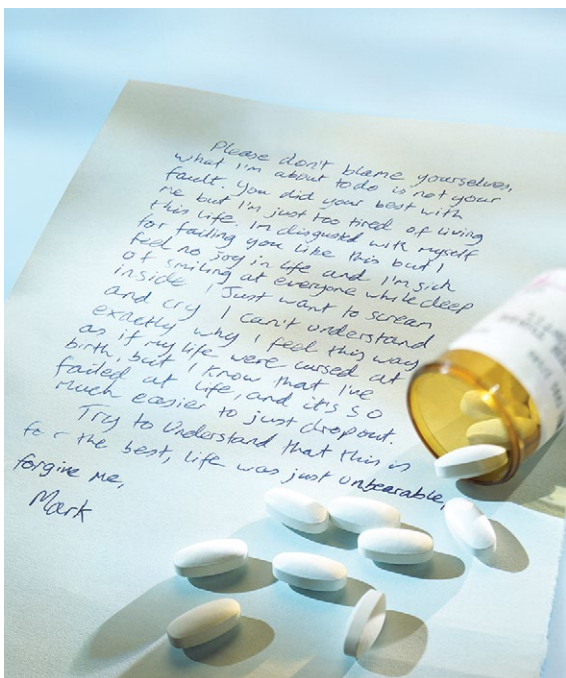 Please don't blame yourselves,
what I'm about to do is not your
fault. You did your best with
me but I'm just too tired of living
this life. I'm disgusted with myself
for failing you like this but I
feel no joy in life and I'm sick
of smiling at everyone while deep
inside I Just want to scream
and cry I can't understand
exactly why I feel this way
as if my life were cursed at
birth, but I know that I've
failed at life, and it's so
much easier to just drop out.
Try to understand that this is
for the best, life was just unbearable,
forgive me,
Mark